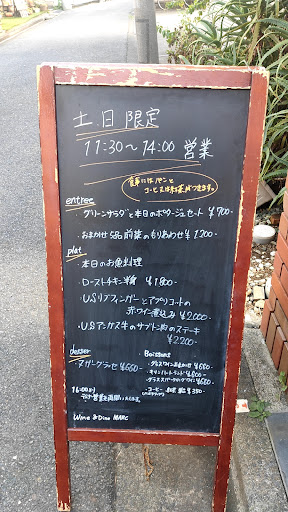 土日限定
11:30〜14:00 営業
食事にはパンと
コーヒー又は紅茶がつきます。
entree
・グリーンサラダと本日のポタージュセット ¥700-
・おまかせ5品前菜のもりあわせ ¥1200-
plat
・本日のお魚料理
・ローストチキン 半身 ¥1800-
・U.S リブフィンガーとアプリコートの
赤ワイン煮込み ¥2,000-
・U.S アンガス牛のサブトン肉のステーキ
¥2,200
dessert
・ヌガーグラッセ ¥650-
Boissons
・グラスワイン 赤or白 ¥650
・グラススパークリングワイン ¥650
・コーヒー 紅茶 ¥350
Wine & Dine MARC